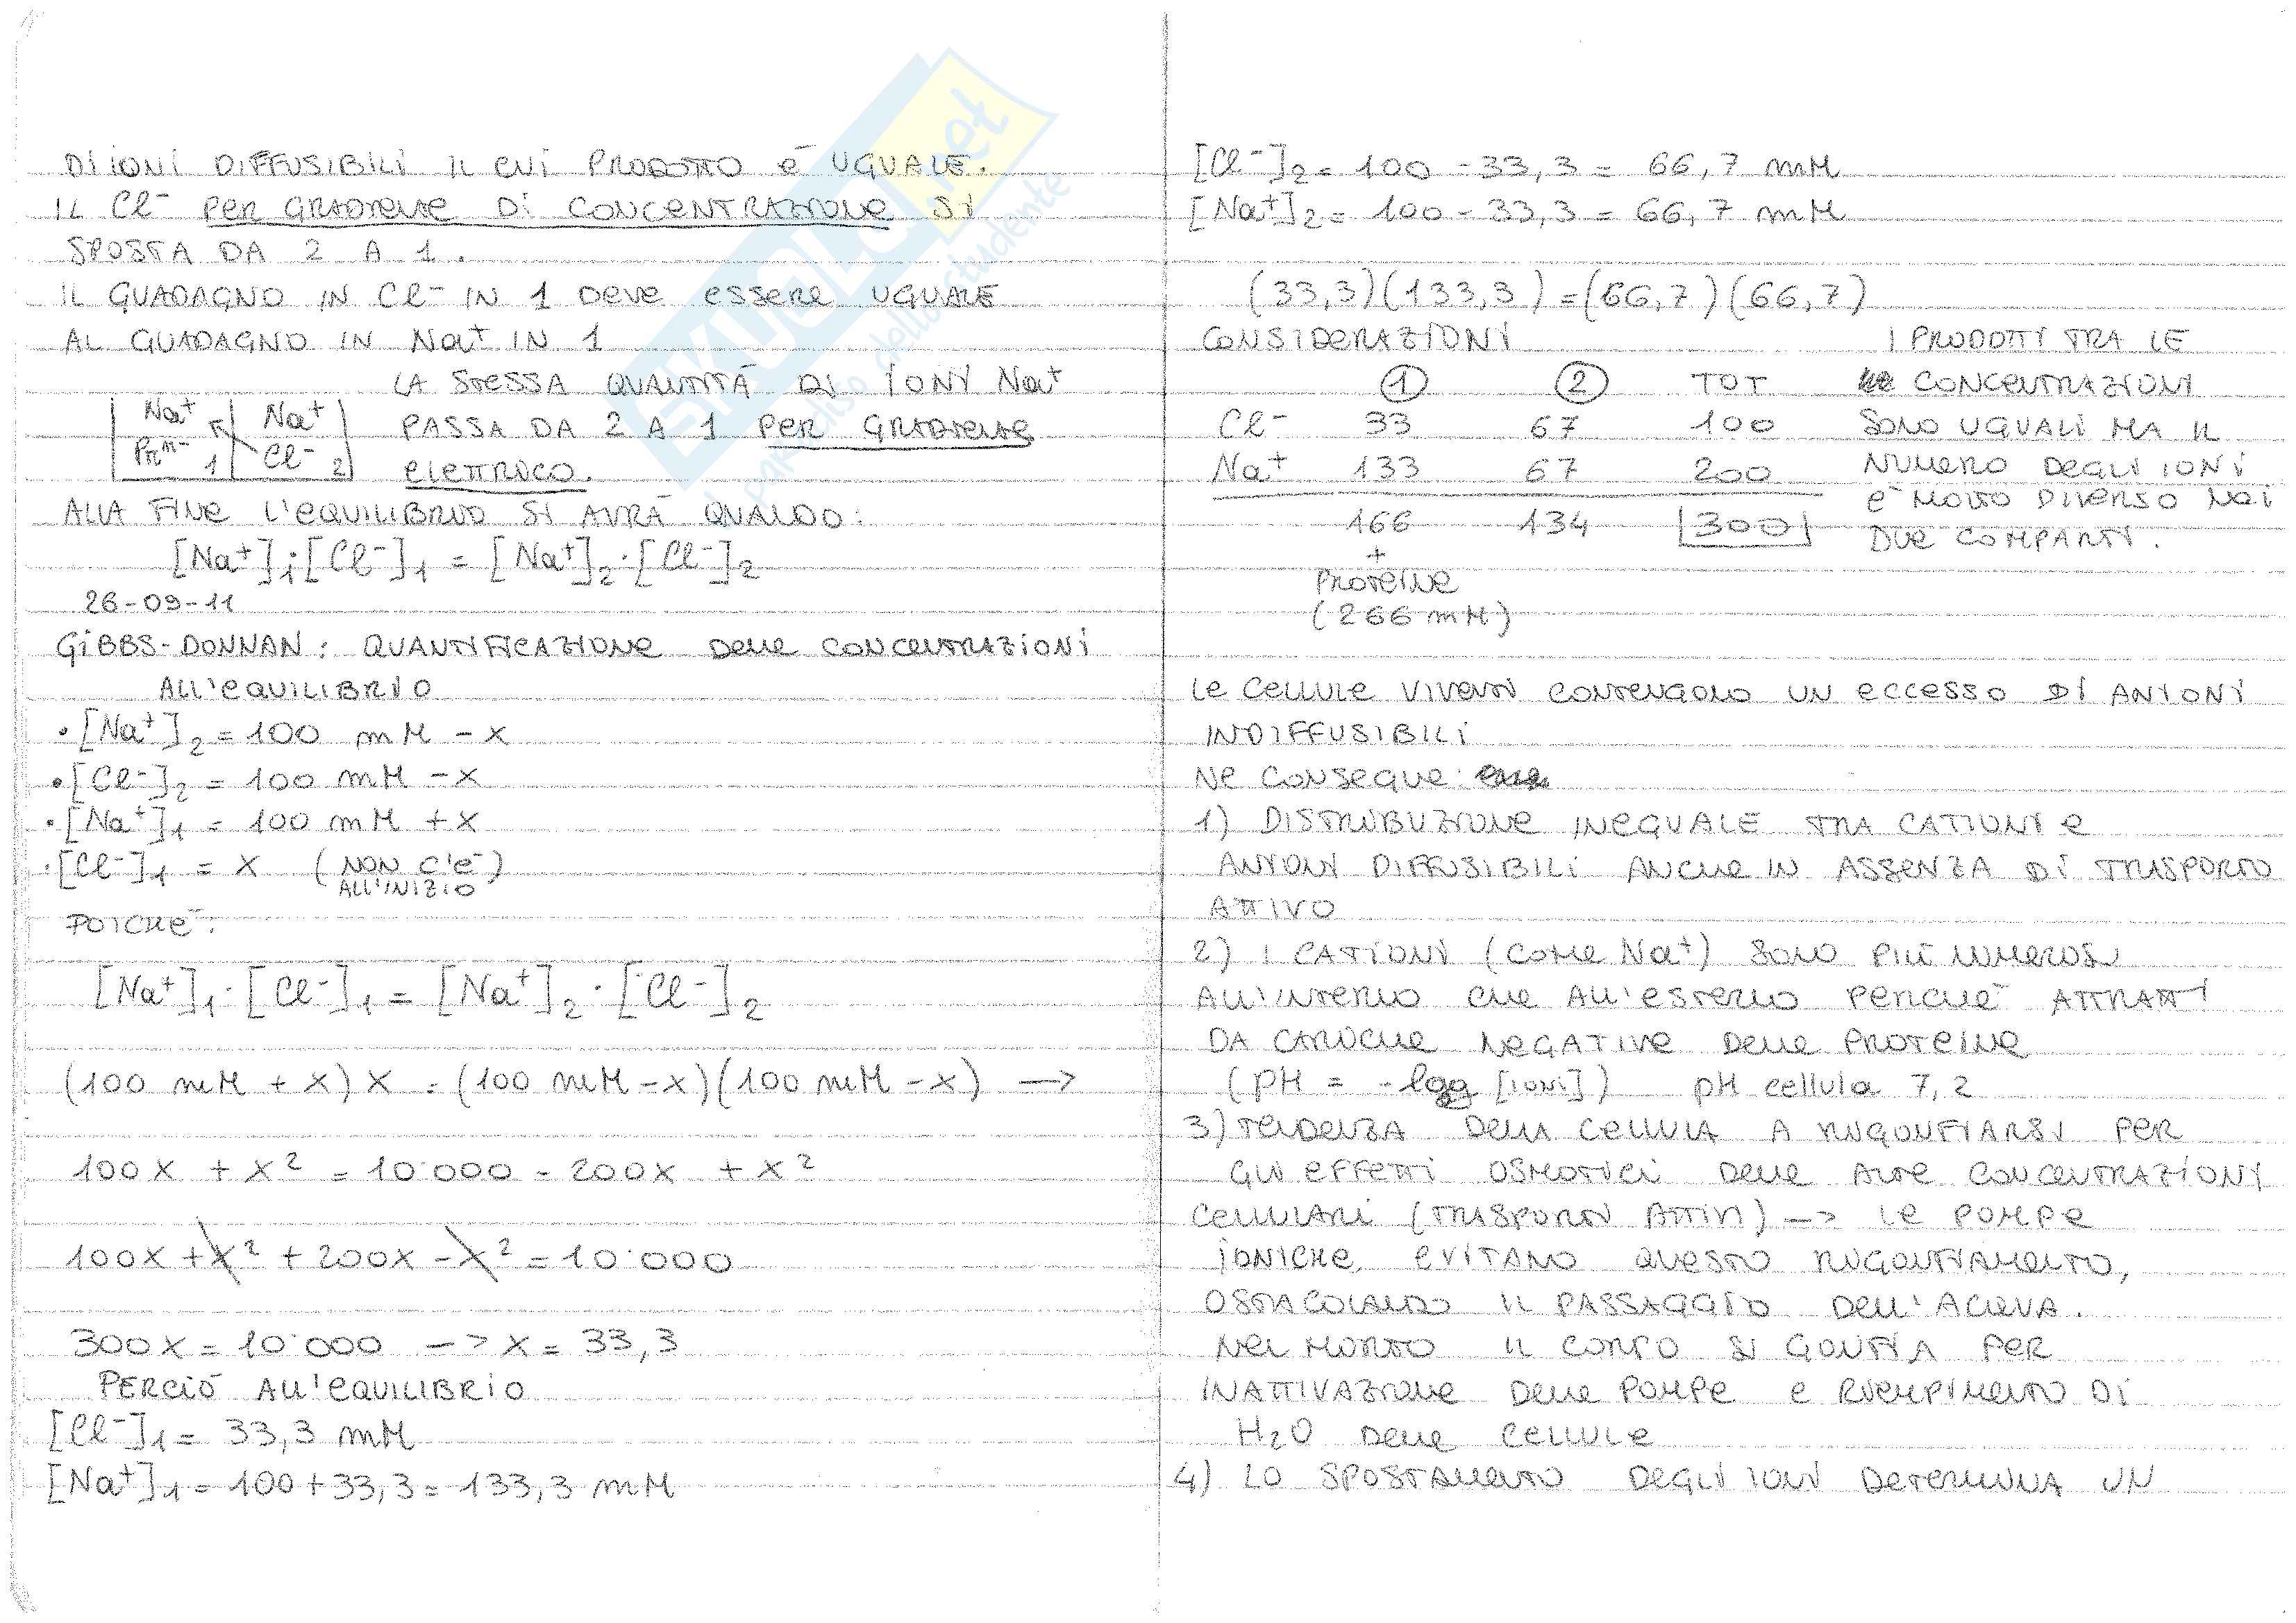 DI IONI DIFFUSIBILI IL CUI PRODOTTO È UGUALE.
IL Cl⁻ PER GRADIENTE DI CONCENTRAZIONE SI
SPOSTA DA 2 A 1.
IL GUADAGNO IN Cl⁻ IN 1 DEVE ESSERE UGUALE
AL GUADAGNO IN Na⁺ IN 1
LA STESSA QUANTITÀ DI IONI Na⁺
PASSA DA 2 A 1 PER GRADIENTE
ELETTRICO.
Na⁺ Na⁺
Prⁿ⁻ 1 Cl⁻ 2
ALLA FINE L'EQUILIBRIO SI AVRÀ QUANDO:
[Na⁺]₁·[Cl⁻]₁ = [Na⁺]₂·[Cl⁻]₂
26-09-11
GIBBS-DONNAN: QUANTIFICAZIONE DELLE CONCENTRAZIONI
ALL'EQUILIBRIO
• [Na⁺]₂ = 100 mM - x
• [Cl⁻]₂ = 100 mM - x
• [Na⁺]₁ = 100 mM + x
• [Cl⁻]₁ = x (NON C'È
ALL'INIZIO)
POICHÈ:
[Na⁺]₁·[Cl⁻]₁ = [Na⁺]₂·[Cl⁻]₂
(100 mM + x) x = (100 mM - x)(100 mM - x) →
100x + x² = 10˙000 - 200x + x²
100x + x² + 200x - x² = 10˙000
300x = 10˙000 → x = 33,3
PERCIÒ ALL'EQUILIBRIO
[Cl⁻]₁ = 33,3 mM
[Na⁺]₁ = 100 + 33,3 = 133,3 mM
[Cl⁻]₂ = 100 - 33,3 = 66,7 mM
[Na⁺]₂ = 100 - 33,3 = 66,7 mM
(33,3)(133,3) = (66,7)(66,7)
CONSIDERAZIONI
1 2 TOT
Cl⁻ 33 67 100
Na⁺ 133 67 200
166 134 300
+
PROTEINE
(266 mM)
I PRODOTTI TRA LE
CONCENTRAZIONI
SONO UGUALI MA IL
NUMERO DEGLI IONI
È MOLTO DIVERSO NEI
DUE COMPARTI.
LE CELLULE VIVENTI CONTENGONO UN ECCESSO DI ANIONI
INDIFFUSIBILI
NE CONSEGUE:
1) DISTRIBUZIONE INEGUALE TRA CATIONI E
ANIONI DIFFUSIBILI ANCHE IN ASSENZA DI TRASPORTO
ATTIVO
2) I CATIONI (COME Na⁺) SONO PIÙ NUMEROSI
ALL'INTERNO CHE ALL'ESTERNO PERCHÈ ATTRATTI
DA CARICHE NEGATIVE DELLE PROTEINE
(pH = -log [IONI]) pH cellula 7,2
3) TENDENZA DELLA CELLULA A RIGONFIARSI PER
GLI EFFETTI OSMOTICI DELLE ALTE CONCENTRAZIONI
CELLULARI (TRASPORTI ATTIVI) → LE POMPE
IONICHE EVITANO QUESTO RIGONFIAMENTO,
OSTACOLANDO IL PASSAGGIO DELL'ACQUA.
NEL MORTO IL CORPO SI GONFIA PER
INATTIVAZIONE DELLE POMPE E RIEMPIMENTO DI
H₂O DELLE CELLULE
4) LO SPOSTAMENTO DEGLI IONI DETERMINA UN
SKUOLA.net